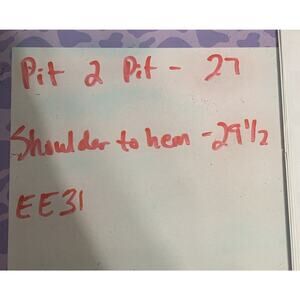 Pit 2 Pit - 27
Shoulder to hem - 29 1/2
EE31